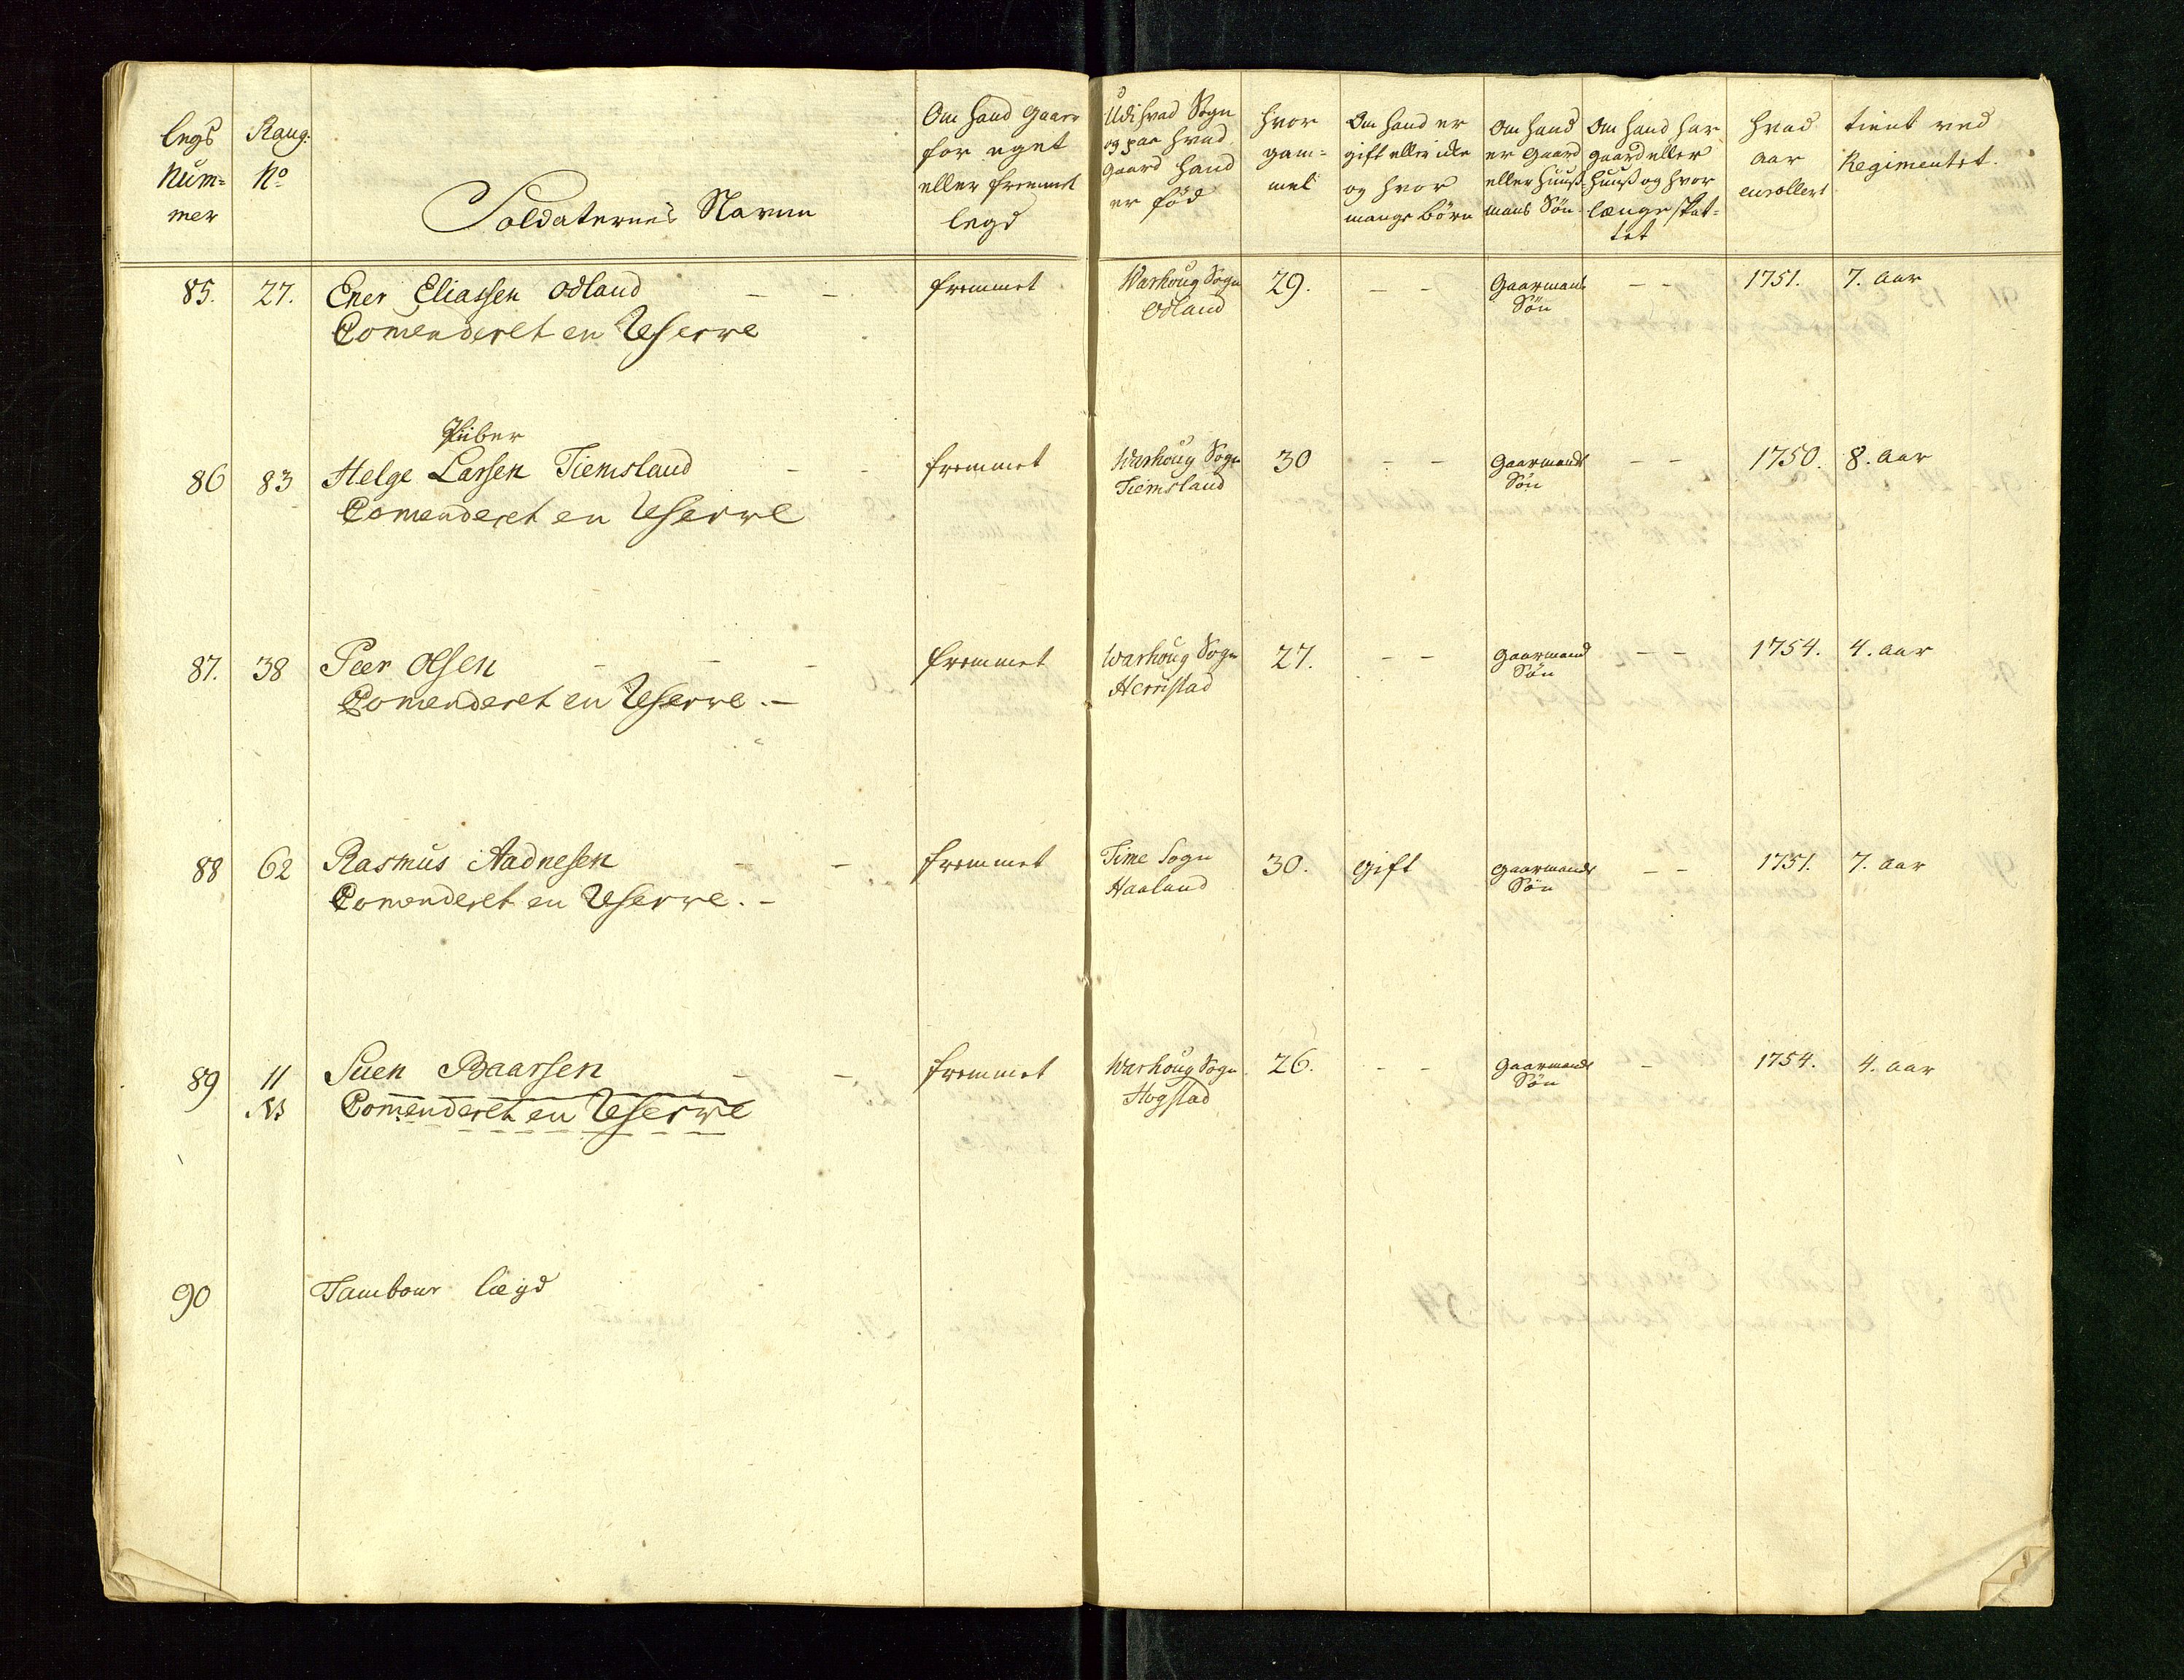 legs Num= mer
Rang. No
Soldaternes Navne
Om hand gaar for eget eller fremmet legd
Udi hvad Sogn og paa hvad gaard hand er föd
hvor gam= mel
Om hand er gift eller icke og hvor mange börn
Om hand er gaard eller huus mands Sön
Om hand har gaard eller huus og hvor længe skat= tet
hvad aar enrollert
tient ved Regimentet.
85. 27. Ener Eliassen Odland - - fremmet Warhoug Sogn 29. - - Gaarmans - - 1751. 7. aar
Comenderet en Reserve Odland Sön
Piiber
86 83 Helge Larsen Tiemsland - - fremmet Warhoug Sogn 30 - - Gaarmands - - 1750. 8. aar
Comenderet en Reserve Tiemsland Sön
87. 38 Peer Olsen - - - fremmet Warhoug Sogn 27. - - Gaarmand - - 1754. 4. aar
Comenderet en Reserve. - Herristad Sön
88 62 Rasmus Aadnesen - - fremmet Time Sogn 30. gift Gaarmands - - 1751. 7. aar
Comenderet en Reserve. - Haaland Sön
89 11 Suen Baarsen - - fremmet Warhoug Sogn 26. - - Gaarmands - 1754. 4. aar
Comenderet en Reserve Hogstad Sön
90 Tambour lægd